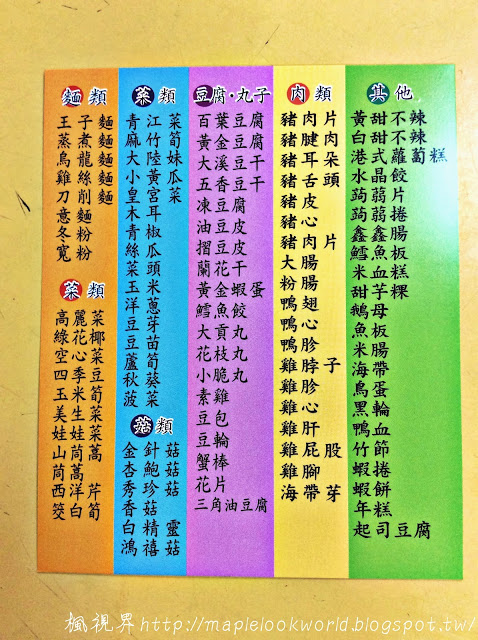 麵類
王子麵
蒸煮麵
烏龍麵
雞絲麵
刀削麵
意麵
冬粉
寬粉
菜類
高麗菜
綠花椰
空心菜
四季豆
玉米筍
美生菜
娃娃菜
山茼蒿
茼蒿
西洋芹
筊白筍
菜類
青江菜
麻竹筍
大陸妹
小黃瓜
皇宮菜
木耳
青椒
絲瓜
菜頭
玉米
洋蔥
豆芽
豆苗
蘆筍
秋葵
菠菜
菇類
金針菇
杏鮑菇
秀珍菇
香菇
白精靈
鴻禧菇
豆腐·丸子
百葉豆腐
黃金豆腐
大溪豆干
五香豆干
凍豆腐
油豆皮
摺豆皮
蘭花干
黃金蝦蛋
鱈魚餃
大貢丸
花枝丸
小脆丸
素雞
豆包
豆輪
蟹棒
花片
三角油豆腐
肉類
豬肉片
豬腱肉
豬耳朵
豬舌頭
豬皮
豬心
豬肉片
大腸
粉腸
鴨翅
鴨心
鴨胗
雞脖子
雞胗
雞心
雞肝
雞屁股
雞腳
海帶芽
其他
黃甜不辣
白甜不辣
港式蘿蔔糕
水晶餃
蒟蒻片
蒟蒻捲
鑫鑫腸
鱈魚板
米血糕
甜芋粿
鵝母
魚板
米腸
海帶
鳥蛋
黑輪
鴨血
竹節
蝦捲
蝦餅
年糕
起司豆腐
楓視界http://maplelookworld.blogspot.tw/